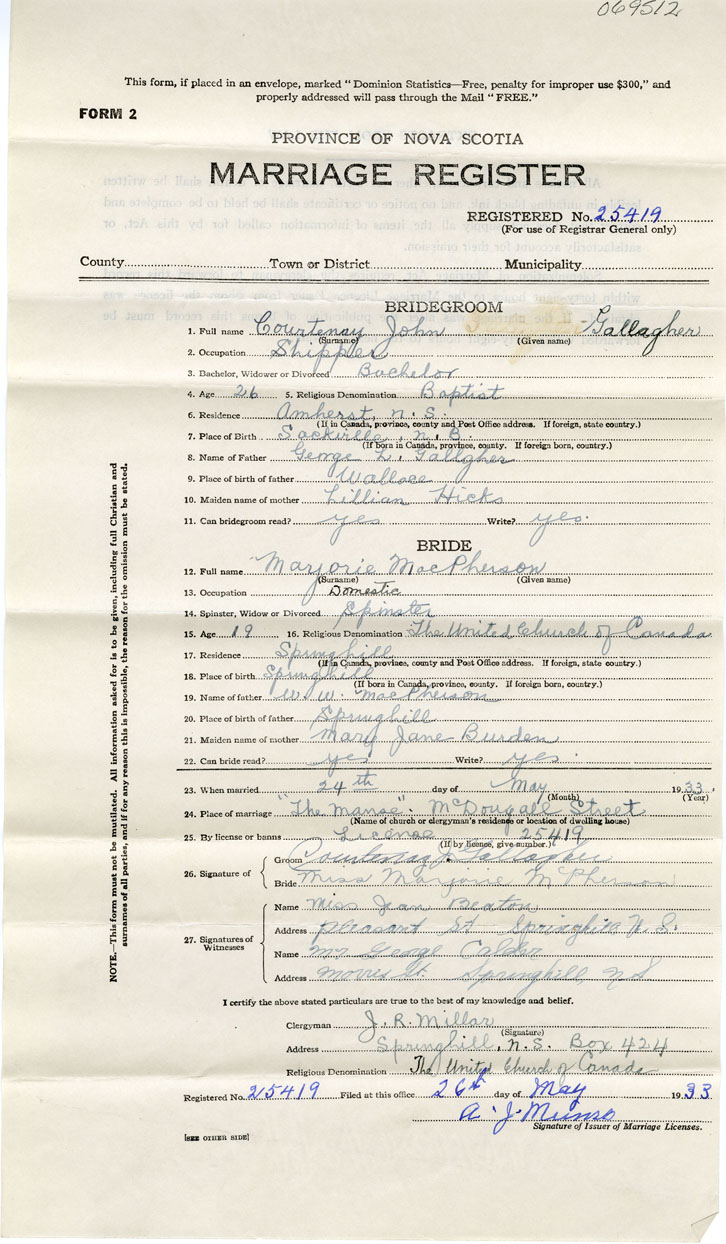 069512
This form, if placed in an envelope, marked "Dominion Statistics—Free, penalty for improper use $300," and
properly addressed will pass through the Mail "FREE."
FORM 2
PROVINCE OF NOVA SCOTIA
MARRIAGE REGISTER
REGISTERED No. 25419
(For use of Registrar General only)
County Town or District Municipality
BRIDEGROOM
1. Full name Courtenay John Gallagher
(Surname) (Given name)
2. Occupation Shipper
3. Bachelor, Widower or Divorced Bachelor
4. Age 26 5. Religious Denomination Baptist
6. Residence Amherst, N.S.
(If in Canada, province, county and Post Office address. If foreign, state country.)
7. Place of Birth Sackville, N.B.
(If born in Canada, province, county. If foreign born, country.)
8. Name of Father George L. Gallgher
9. Place of birth of father Wallace
10. Maiden name of mother Lillian Hicks
11. Can bridegroom read? yes Write? yes.
BRIDE
12. Full name Marjorie MacPherson
(Surname) (Given name)
13. Occupation Domestic
14. Spinster, Widow or Divorced Spinster
15. Age 19 16. Religious Denomination The United Church of Canada
17. Residence Springhill
(If in Canada, province, county and Post Office address. If foreign, state country.)
18. Place of birth Springhill
(If born in Canada, province, county. If foreign born, country.)
19. Name of father W. W. MacPherson
20. Place of birth of father Springhill
21. Maiden name of mother Mary Jane Burden
22. Can bride read? yes Write? yes.
23. When married 24th day of May 1933
(Month) (Year)
24. Place of marriage "The Manse" McDougall Street
(Name of church or clergyman's residence or location of dwelling house)
25. By license or banns License 25419
(If by licence, give number.)
26. Signature of
Groom Courtenay J. Gallagher
Bride Miss Marjorie McPherson
27. Signatures of Witnesses
Name Miss Jean Beaton
Address Pleasant St Springhill N.S.
Name Mr George Calder
Address Morris St. Springhill NS
I certify the above stated particulars are true to the best of my knowledge and belief.
Clergyman J. R. Millar
(Signature)
Address Springhill, N.S. Box 424
Religious Denomination The United Church of Canada
Registered No. 25419 Filed at this office 26th day of May 1933
A. J. Munro
Signature of Issuer of Marriage Licenses.
[SEE OTHER SIDE]
NOTE.—This form must not be mutilated. All information asked for is to be given, including full Christian and
surnames of all parties, and if for any reason this is impossible, the reason for the omission must be stated.